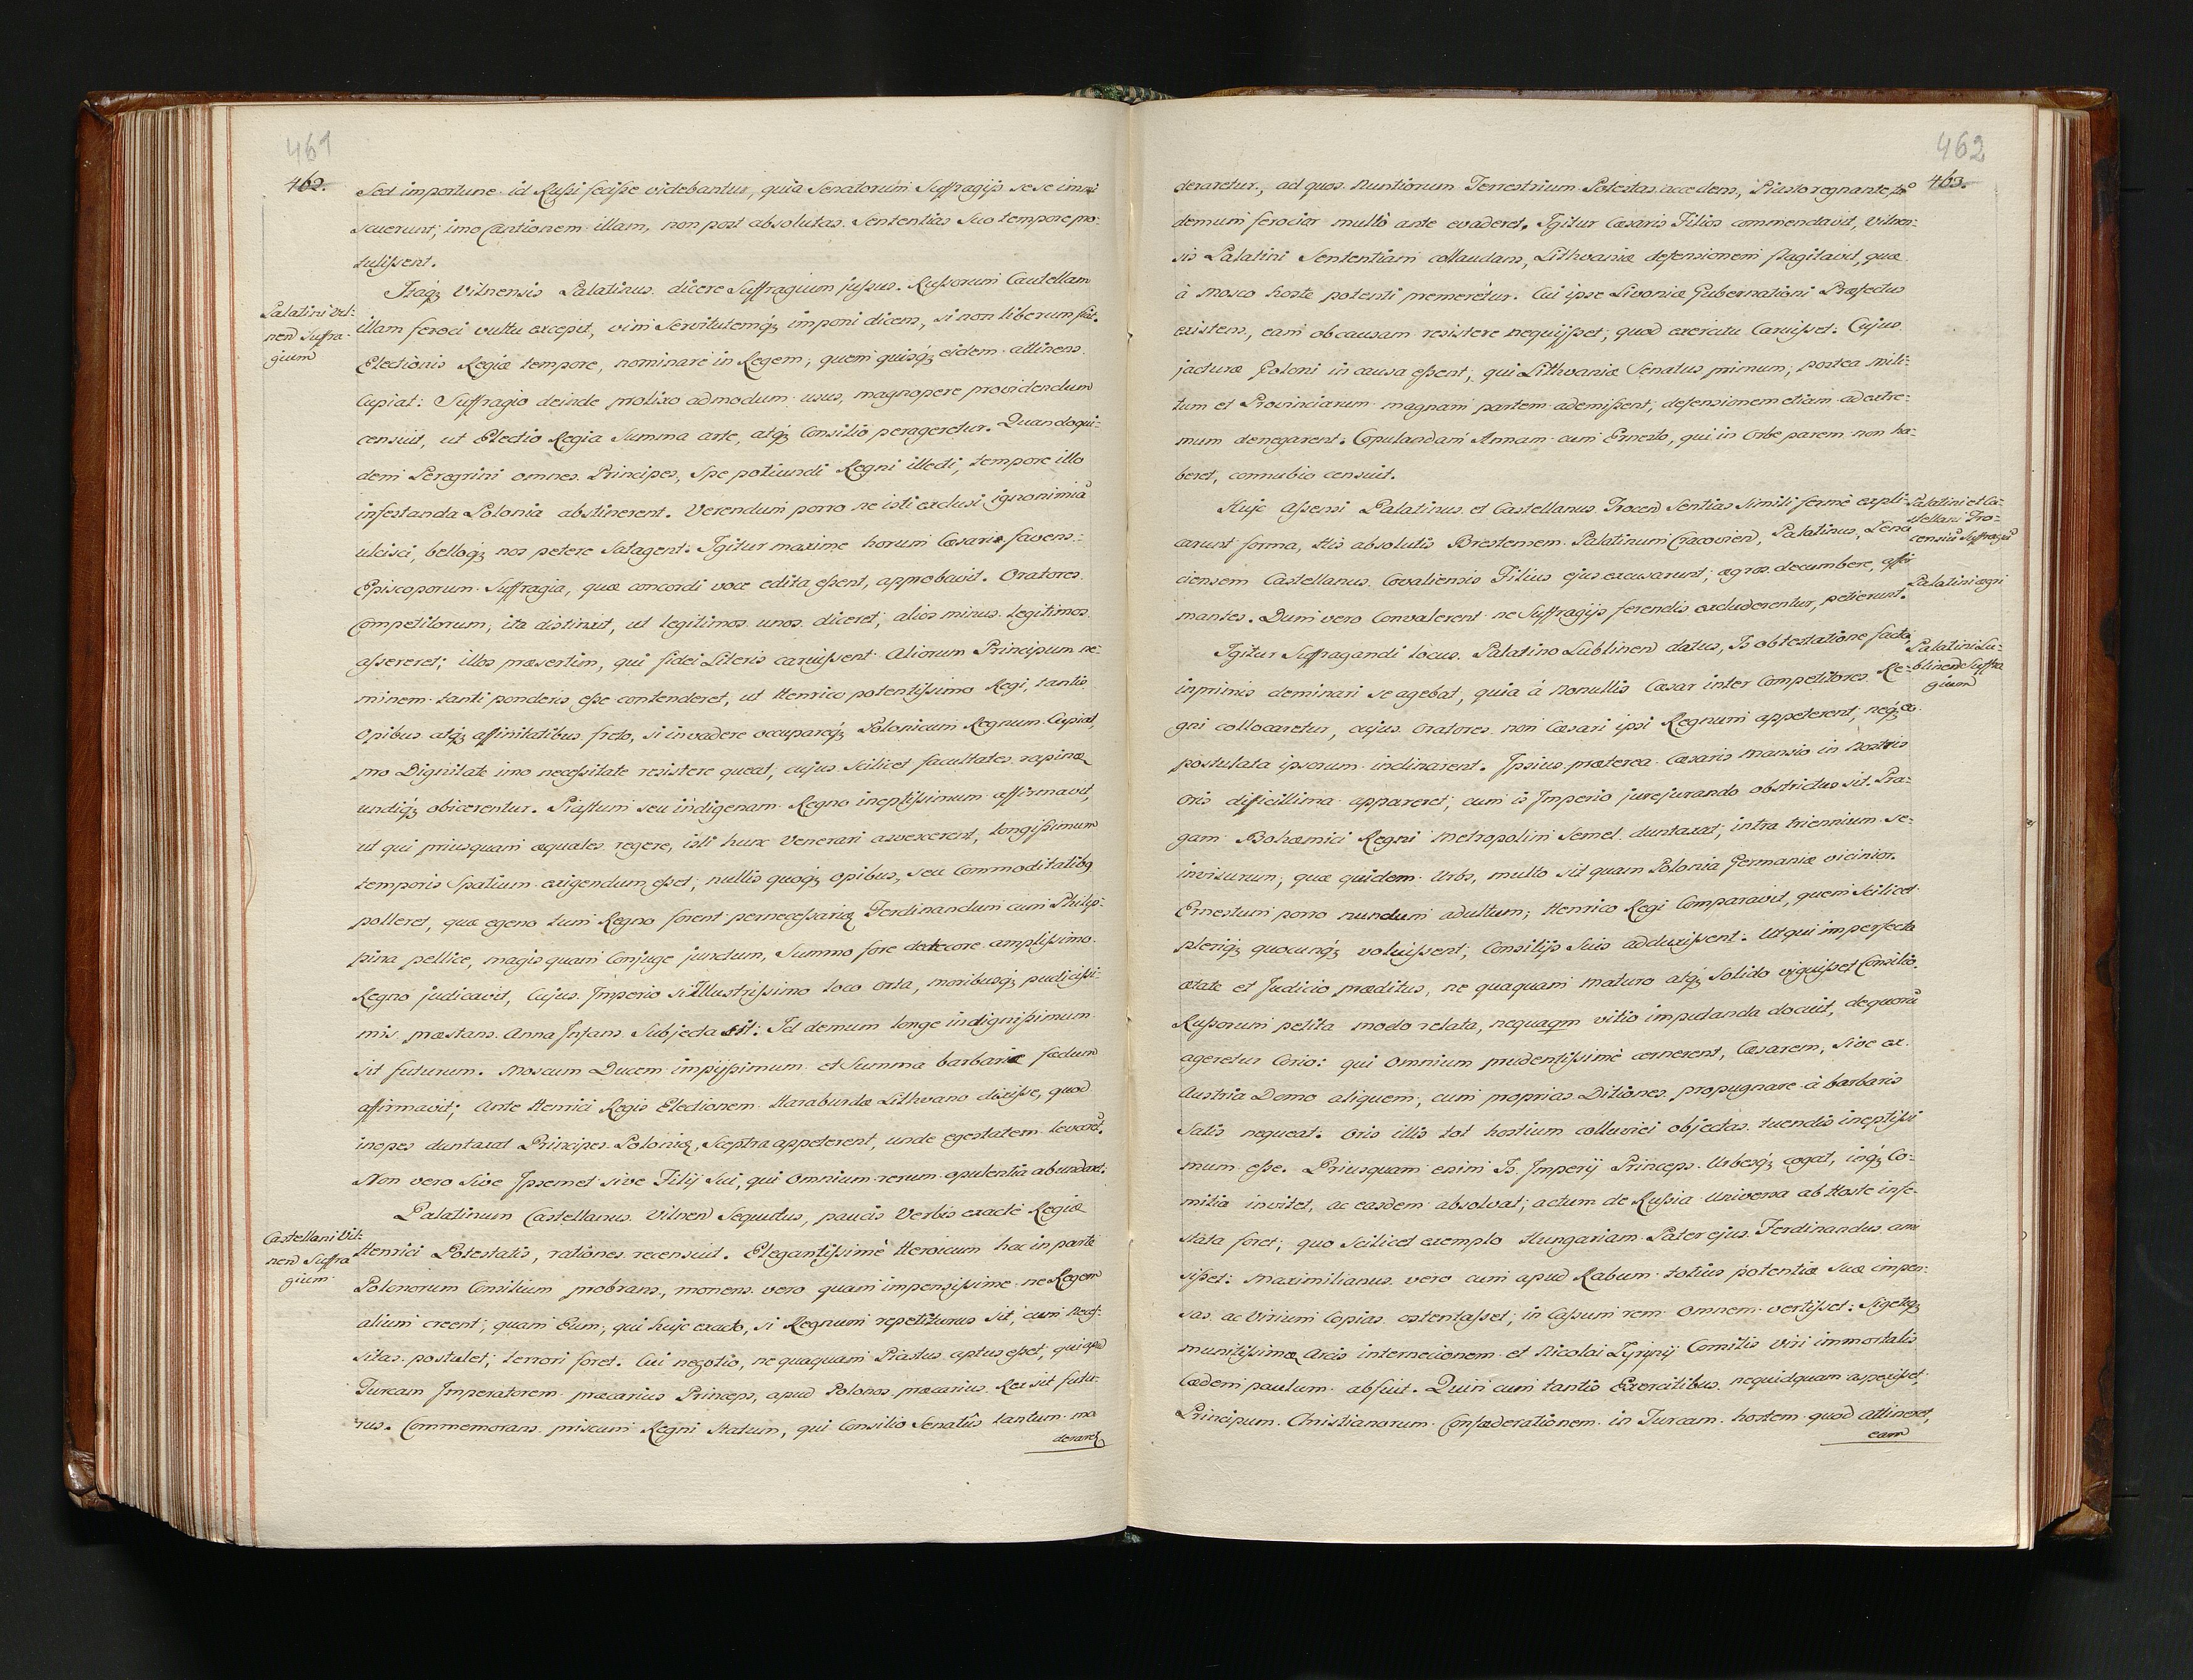 461
462.
Sed importune id Russi fecisse videbantur, quia Senatorum Suffragijs sese immi
scuerunt; imo Cautionem illam, non post absolutas Sententias Suo tempore pro-
tulissent.
Itaqz Vilnensis Palatinus dicere Suffragium jussus. Russorum Cautellam
Palatini Vil-
nen Suffra-
gium
illam feroci vultu excepit, vim Servitutemqz imponi dicens, si non liberum sit.
Electionis Regiæ tempore, nominare in Regem, quem quisqz eidem attinens
Cupiat: Suffragio deinde prolixo admodum usus, magnopere providendum
censuit, ut Electio Regia Summa arte, atqz Consilio perageretur. Quandoqui-
dem Peregrini omnes Principes, Spe potiundi Regni illecti, tempore illo
infestanda Polonia abstinerent. Verendum porro ne isti exclusi ignonimia
ulcisci, belloqz nos petere Satagent: Igitur maxime horum Cæsaris favens
Episcoporum Suffragia, quæ concordi voce edita essent, approbavit. Oratores
Competitorum, ita distinxit, ut legitimos unos diceret, alios minus legitimos
assereret; illos præsertim, qui fidei Literis caruissent Aliorum Principum ne-
minem tanti ponderis esse contenderet, ut Henrico potentissimo Regi, tantis
Opibus atqz affinitatibus freto, si invadere occupareqz Polonicum Regnum Cupiat,
pro Dignitate imo necessitate resistere queat, cujus Scilicet facultates rapinæ
undiqz obicerentur. Piastum seu indigenam Regno ineptissimum affirmavit,
ut qui priusquam æquales regere, isti hunc Venerari asvescerent, longissimum
temporis Spatium exigendum esset; nullis quoqz opibus, seu Commoditatibq
polleret, quæ egeno tum Regno forent pernecessariæ Ferdinandum cum Philip-
pina pellice, magis quam Conjuge junctum, Summo fore dedecore amplissimo
Regno judicavit, Cujus Imperio si Illustrissimo loco orta, moribusqz pudicissi-
mis præstans Anna Infans Subjecta sit: Id demum longe indignissimum
sit futurum. Moscum Ducem impijssimum et Summa barbarie fædum
affirmavit; Ante Henrici Regis Electionem Haraburdæ Lithvano dixisse, quod
inopes duntaxat Principes Poloniæ, Sceptra appeterent, unde egestatem levaret.
Non vero Sive Ipsemet sive Filij Sui, qui Omnium rerum opulentia abundaret.
Palatinum Castellanus Vilnen Sequutus, paucis Verbis exactè Regiæ
Castellani Vil-
nen Suffra
gium
Henrici Potestatis, rationes recensuit. Elegantissimè Heroicum hac in parte
Polonorum Consilium probrans, monens vero quam impensissime ne Regem
alium creent; quam Eum, qui hujc exacto, si Regnum repetiturus sit, cum neces-
sitas postulet; terrori foret. Cui negotio, ne quaquam Piastus aptus esset; qui apud
Turcam Imperatorem præcarius Princeps, apud Polonos præcarius Rex sit futu-
rus. Commemorans priscum Regni Statum, qui Consilio Senatûs tantum mo
deraret
462
463.
deraretur, ad quos Nuntiorum Terrestrium Potestas accedens, Piasto regnante,
demum ferocior multò ante evaderet. Igitur Cæsaris Filios commendavit, Vilnen-
sis Palatini Sententiam collaudans, Lithvaniæ defensionem flagitavit, quæ
à Mosco hoste potenti premeretur. Cui ipse Livoniæ Gubernationi Præfectus
existens, eam ob causam resistere nequijsset; quod exercitu Caruisset: Cujus
jacturæ Poloni in causa essent, qui Lithvaniæ Senatus primum, postea mili-
tum et Provinciarum magnam partem ademissent, defensionem etiam ad extre-
mum denegarent. Copulandam Annam cum Ernesto, qui in Orbe parem non ha-
beret, connubio censuit.
Hujc assensi Palatinus et Castellanus Trocen Sentias simili fermè expli-
Palatini et Ca-
stellani Tro-
censiu Suffragia
carunt forma, His absolutis Brestensem Palatinum Cracovien, Palatinus, Lenci
ciensem Castellanus Covaliensis Filius ejus excusarunt; ægros decumbere, affir
Palatini ægri
mantes. Dum vero Convalerent ne Suffragijs ferendis excluderentur, petierunt.
Igitur Suffragandi locus Palatino Lublinen datus, Is obtestatione facta,
Palatini Lu-
blinen Suffra
gium
inprimis deminari se agebat, quia à Nonullis Cæsar inter Competitores Re-
gni collocaretur, cujus Oratores non Cæsari ipsi Regnum appeterent, neqz eo
postulata ipsorum inclinarent. Ipsius præterea Cæsaris Mansio in Nostris
Oris difficillima appareret, cum is Imperio jurejurando obstrictus sit. Pra-
gam Bohæmici Regni Metropolim Semel duntaxat, intra triennium se
invisurum, quæ quidem Urbs, multo sit quam Polonia Germaniæ vicinior.
Ernestum porro nundum adultum, Henrico Regi Comparavit, quem Scilicet
pleriqz quocunqz voluissent, Consilijs Suis adduxissent: Ut qui imperfecta
ætate et Judicio præditus, ne quaquam maturo atqz Solido viguisset Consilio.
Russorum petita modo relata, nequaqm vitio imputanda docuit, de quorũ
ageretur Corio: qui Omnium prudentissimè cernerent, Cæsarem, Sive ex
Austria Domo aliquem, cum proprias Ditiones propugnare à barbaris
Satis nequeat. Oris illis tot hostium colluviei objectas tuendis ineptissi
mum esse. Priusquam enim Is Imperij Princeps Urbesqz cogat, inqz Co-
mitia invitet, ac easdem absolvat; actum de Russia Universa ab Hoste infe-
stata foret, quo Scilicet exemplo Hungariam Pater ejus Ferdinandus ami
sisset: Maximilianus vero cum apud Rabum totius potentiæ suæ impen-
sas ac Virium Copias ostentasset; in Cassum rem Omnem vertisset: Sigethqz
munitissimæ Arcis internecionem et Nicolai Zyrinij Comitis Viri immortalis
Cædem paulum abfuit. Quin cum tantis Exercitibus nequidquam aspexisset,
Principum Christianorum Confæderationem in Turcam hostem quod attineret,
eam